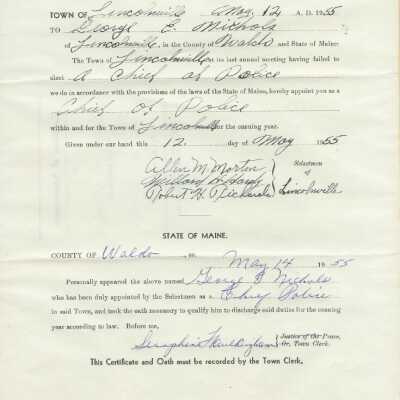 TOWN OF Lincolnville May 12 A. D. 1955
TO George E. Nichols
of Lincolnville, in the County of Waldo and State of Maine:
The Town of Lincolnville at its last annual meeting having failed to
elect A Chief of Police
we do in accordance with the provisions of the laws of the State of Maine, hereby appoint you as a
Chief of Police
within and for the Town of Lincolnville for the ensuing year.
Given under our hand this 12 day of May 1955
Allen M. Morton
Robert H. Richards
Selectmen of Lincolnville
STATE OF MAINE.
COUNTY OF Waldo, ss. May 14 1955
Personally appeared the above named George E Nichols
who has been duly appointed by the Selectmen as a Chief Police
in said Town, and took the oath necessary to qualify him to discharge said duties for the ensuing
year according to law. Before me,
Justice of the Peace,
Or, Town Clerk.
This Certificate and Oath must be recorded by the Town Clerk.